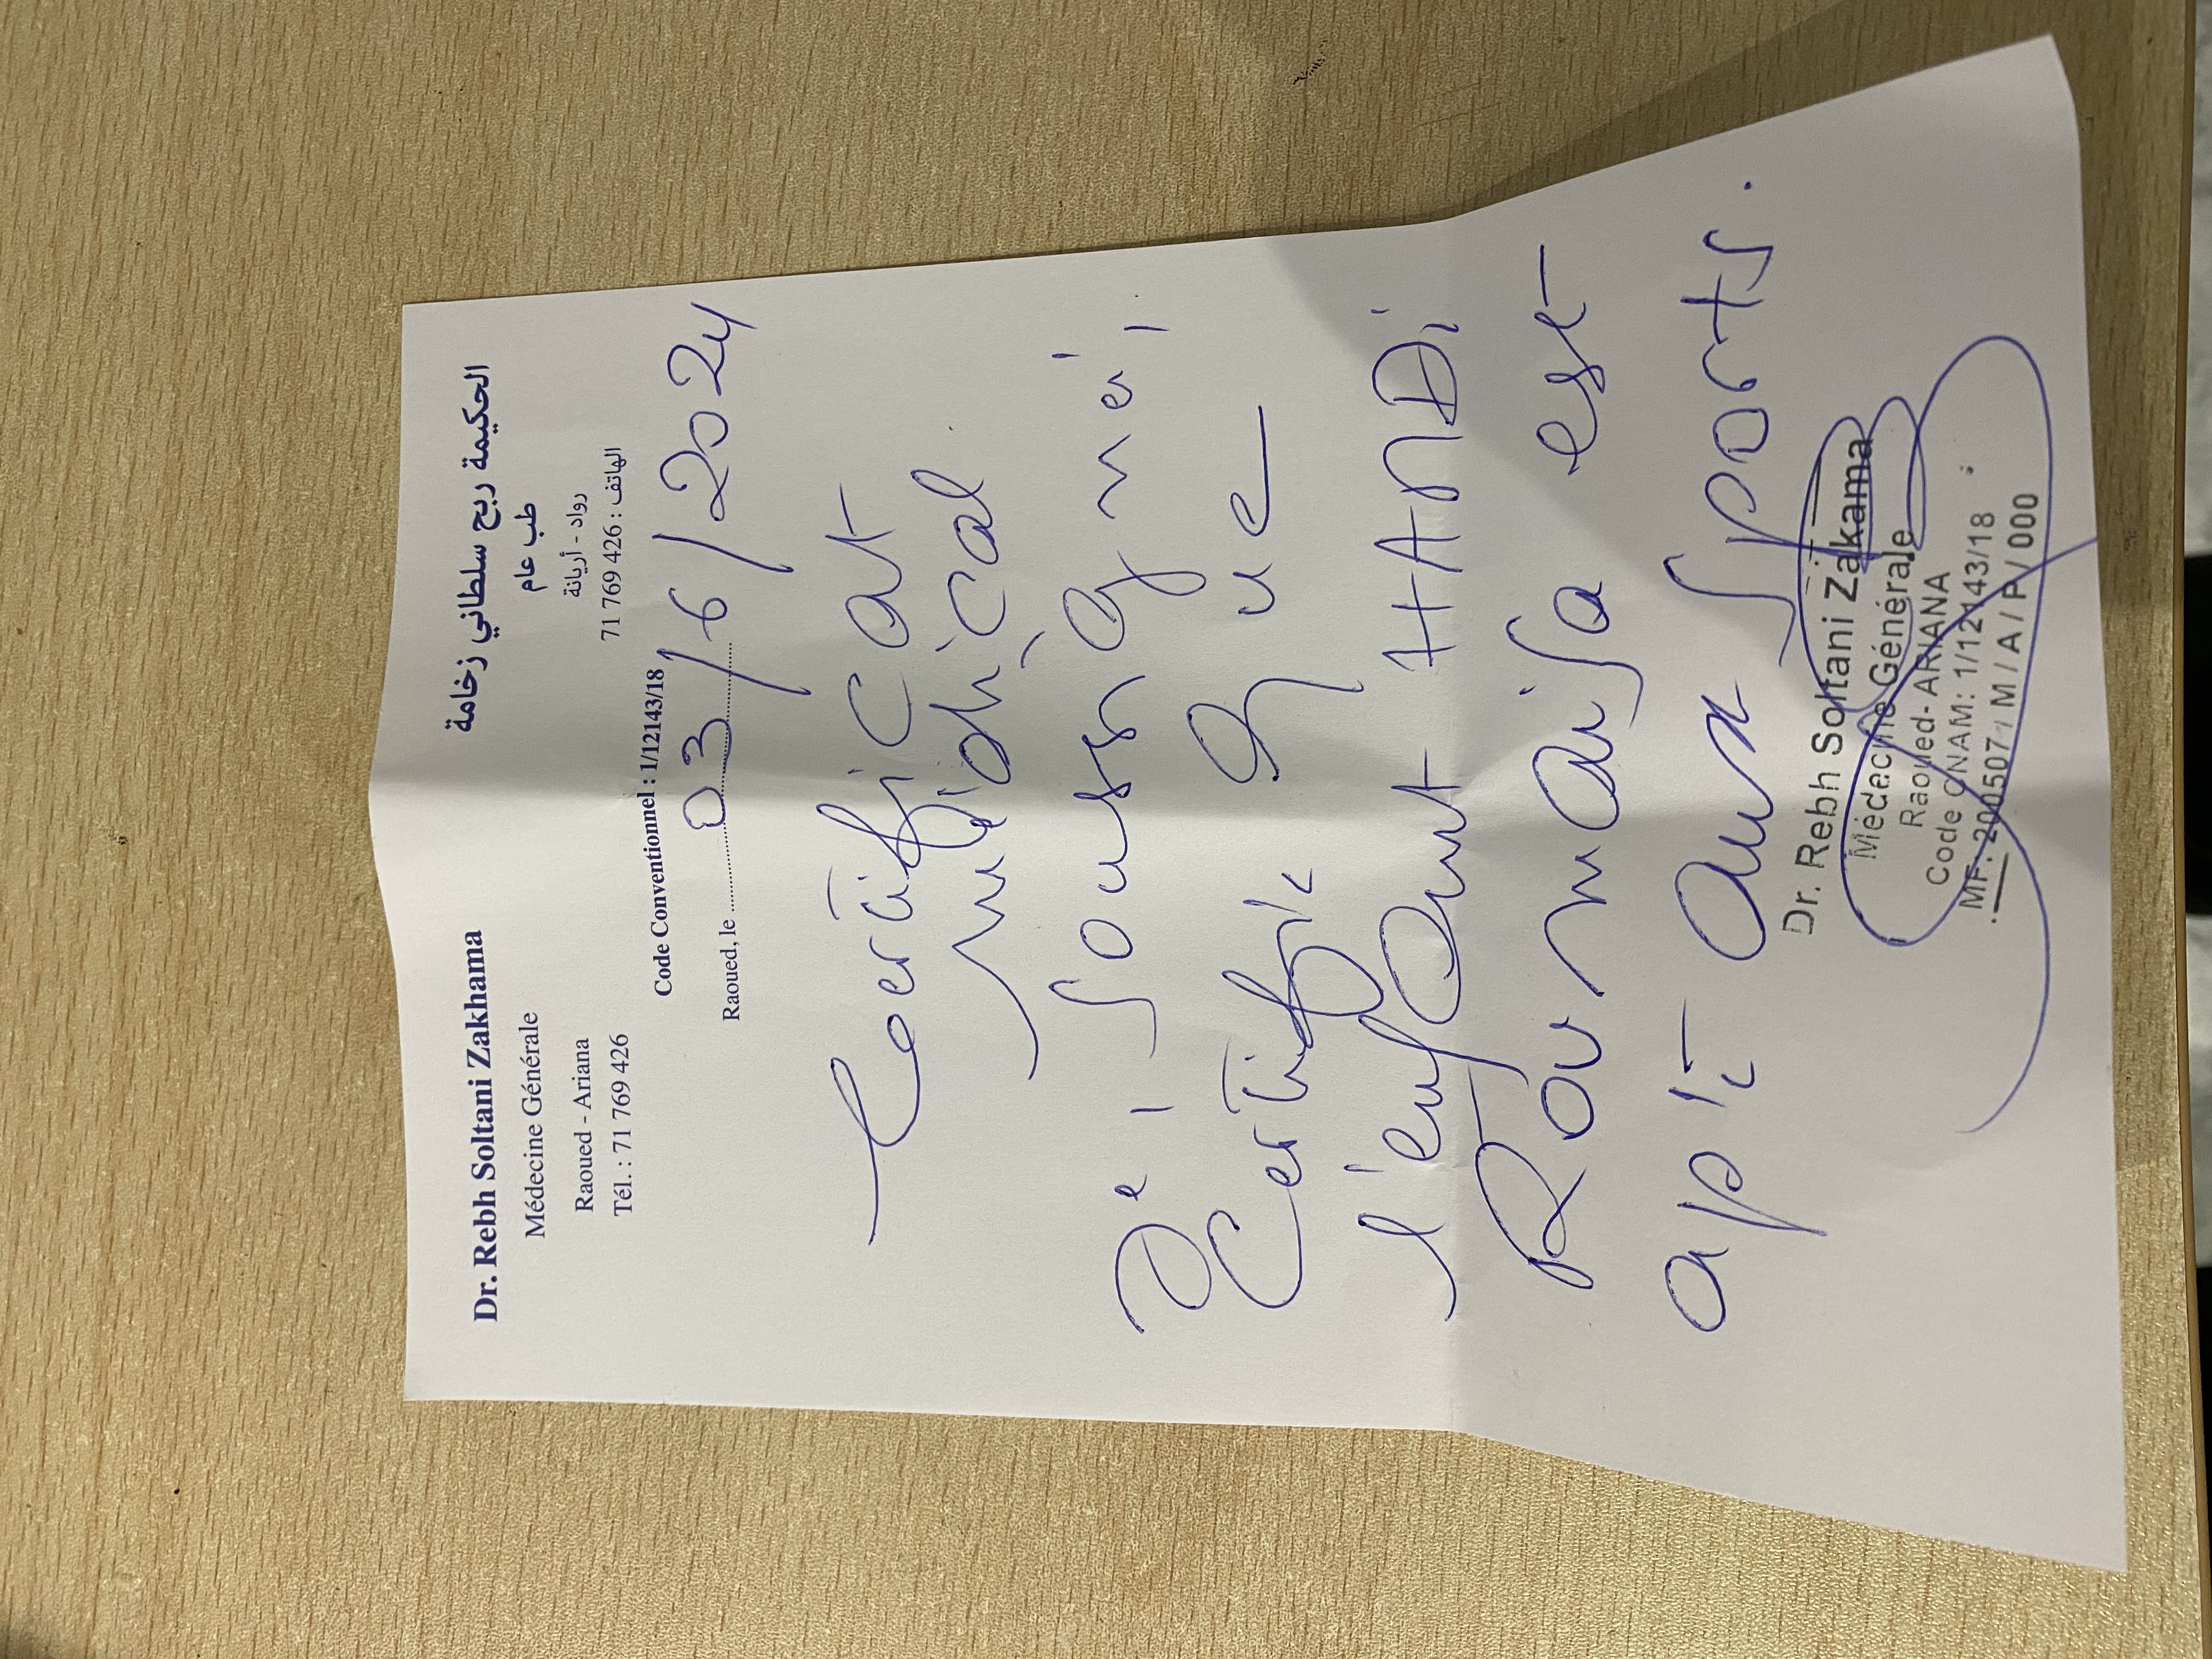 Dr. Rebh Soltani Zakhama
Médecine Générale
Raoued - Ariana
Tél. : 71 769 426
الحكيمة ربح سلطاني زخامة
طب عام
رواد - أريانة
الهاتف : 426 769 71
Code Conventionnel : 1/12143/18
Raoued, le 03/6/2024
Certificat
médical
Je soussigné,
Certifie que
l'enfant HANDi
Roumaisa est
apte aux sports.
Dr. Rebh Soltani Zakama
Médecine Générale
Raoued- ARIANA
Code CNAM: 1/12143/18
MF: / M / A / P / 000